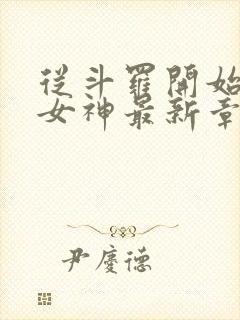 從斗羅開始
女神最新章
尹慶德